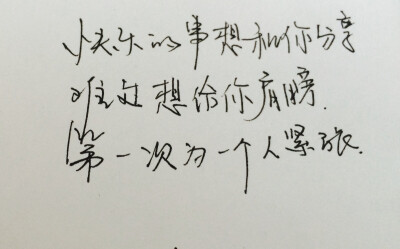 快乐的事想和你分享
难过想给你肩膀.
第一次为一个人紧张.